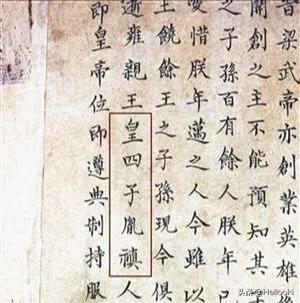 昔梁武帝亦創業英雄
開創之主不能預知其
之子孫百有餘人朕年已
惜朕年邁之人今雖以
王饒餘王之子孫現今俱
逝雍親王皇四子胤禛人
即皇帝位即遵典制持服
头条 @Hellooki